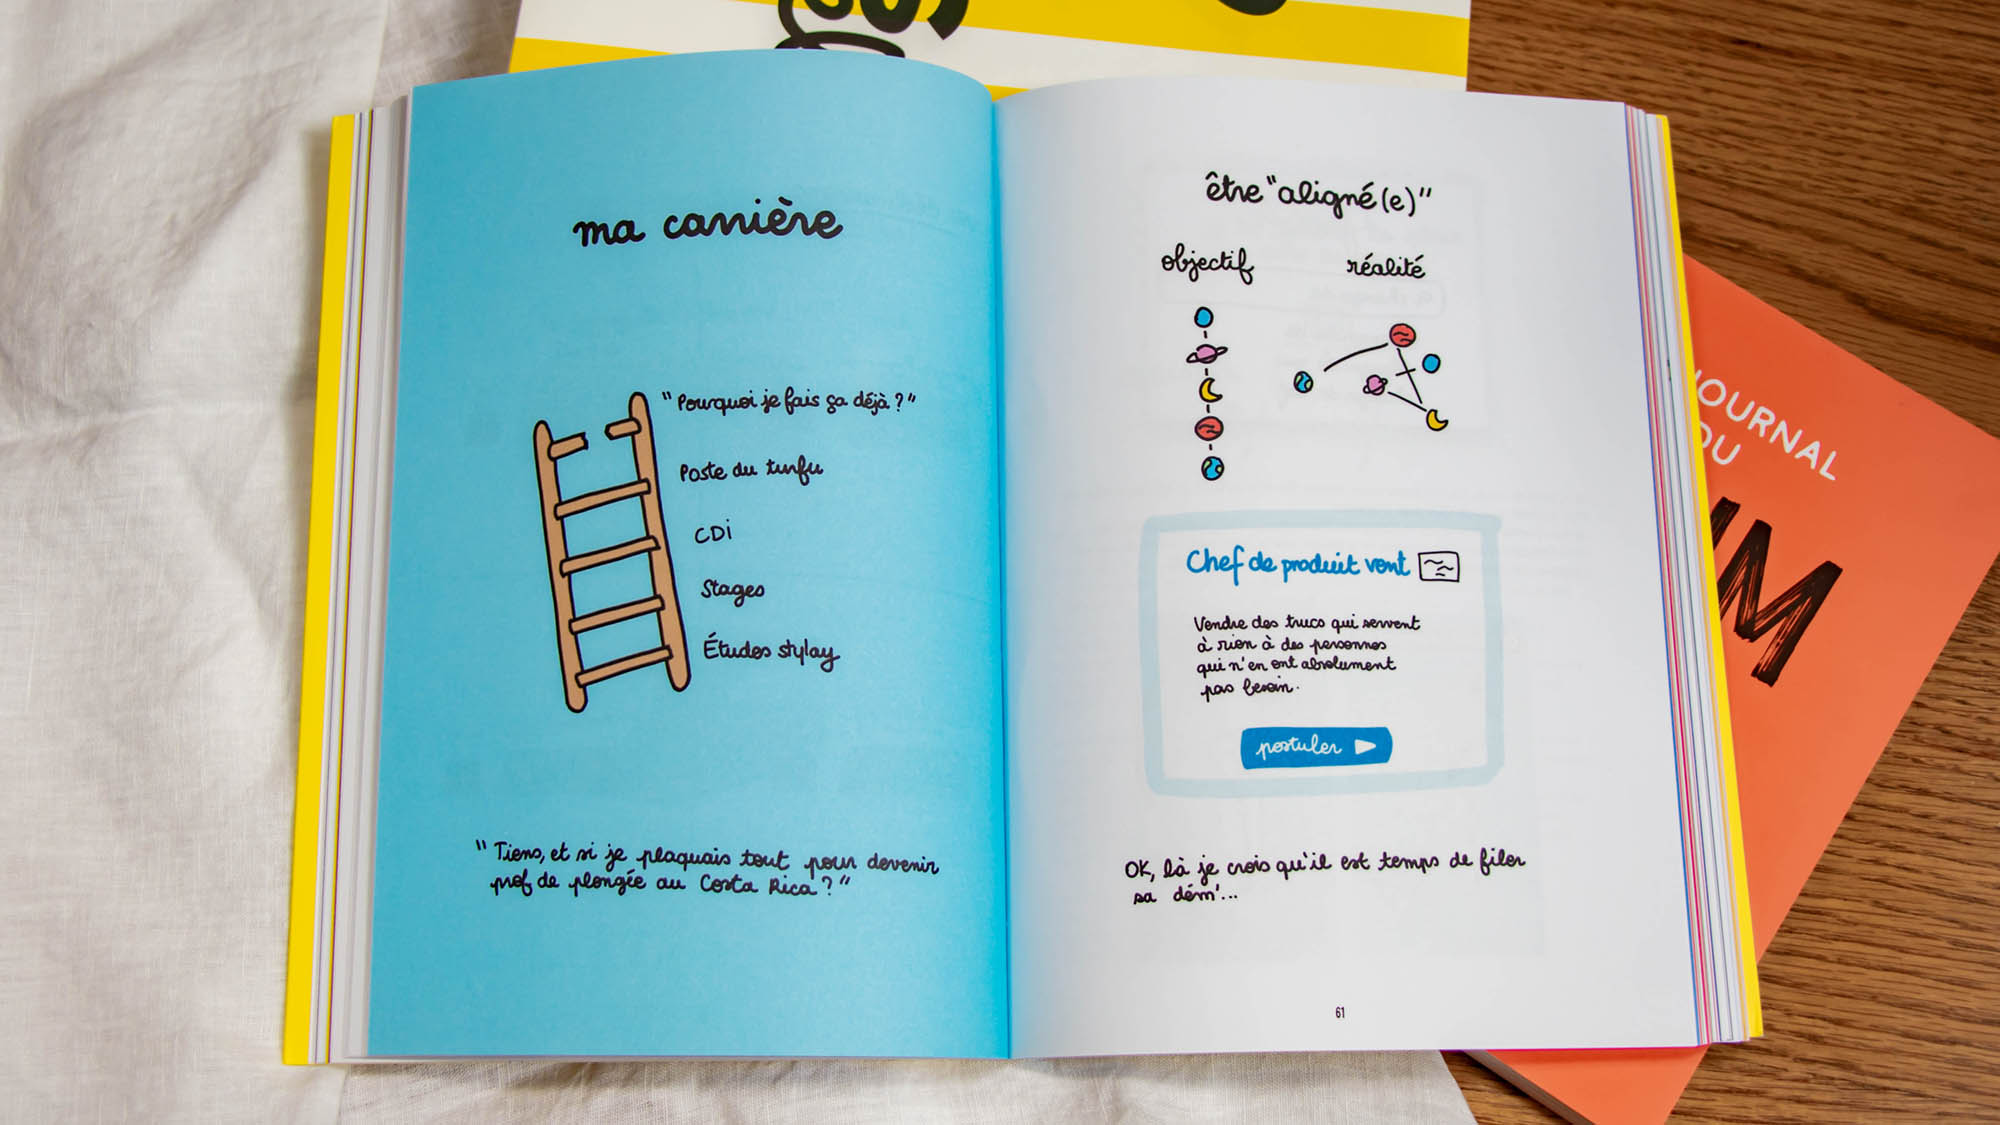 ma carrière
"Pourquoi je fais ça déjà ?"
Poste du turfu
CDi
Stages
Études stylay
"Tiens, et si je plaquais tout pour devenir
prof de plongée au Costa Rica ?"
être "aligné(e)"
objectif
réalité
Chef de produit vent
Vendre des trucs qui servent
à rien à des personnes
qui n'en ont absolument
pas besoin.
postuler
OK, là je crois qu'il est temps de filer
sa dém'...
61
JOURNAL
DU